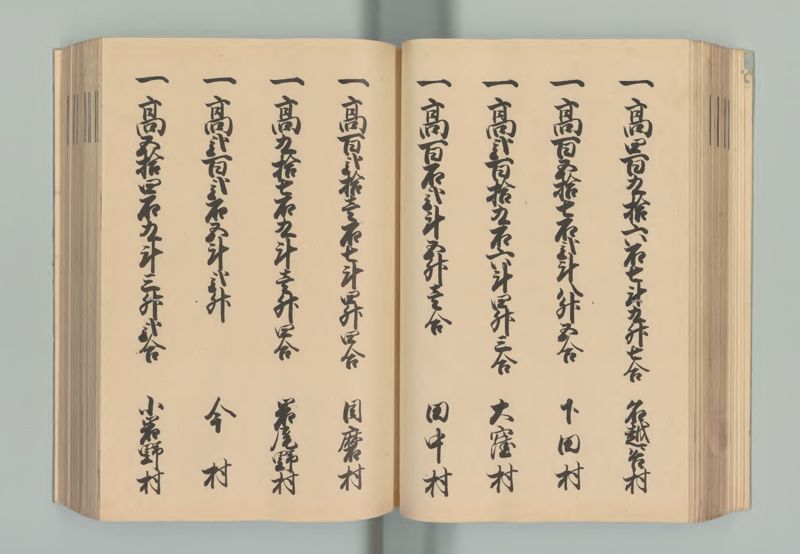 一高四百九拾六石七斗九升七合 名越谷村
一高百五拾七石弐斗八升五合 下田村
一高弐百拾九石六斗四升三合 大窪村
一高百石弐斗五升壱合 田中村
一高百弐拾壱石七斗四升四合 目磨村
一高九拾七石九斗壱升四合 岩尾野村
一高弐百弐石五斗弐升 今村
一高五拾四石九斗三升弐合 小岩野村